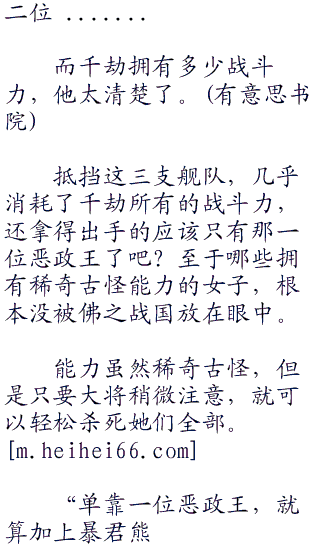 二位 .......
而千劫拥有多少战斗
力，他太清楚了。(有意思书
院)
抵挡这三支舰队，几乎
消耗了千劫所有的战斗力，
还拿得出手的应该只有那一
位恶政王了吧？至于哪些拥
有稀奇古怪能力的女子，根
本没被佛之战国放在眼中。
能力虽然稀奇古怪，但
是只要大将稍微注意，就可
以轻松杀死她们全部。
[m.heihei66.com]
“单靠一位恶政王，就
算加上暴君熊